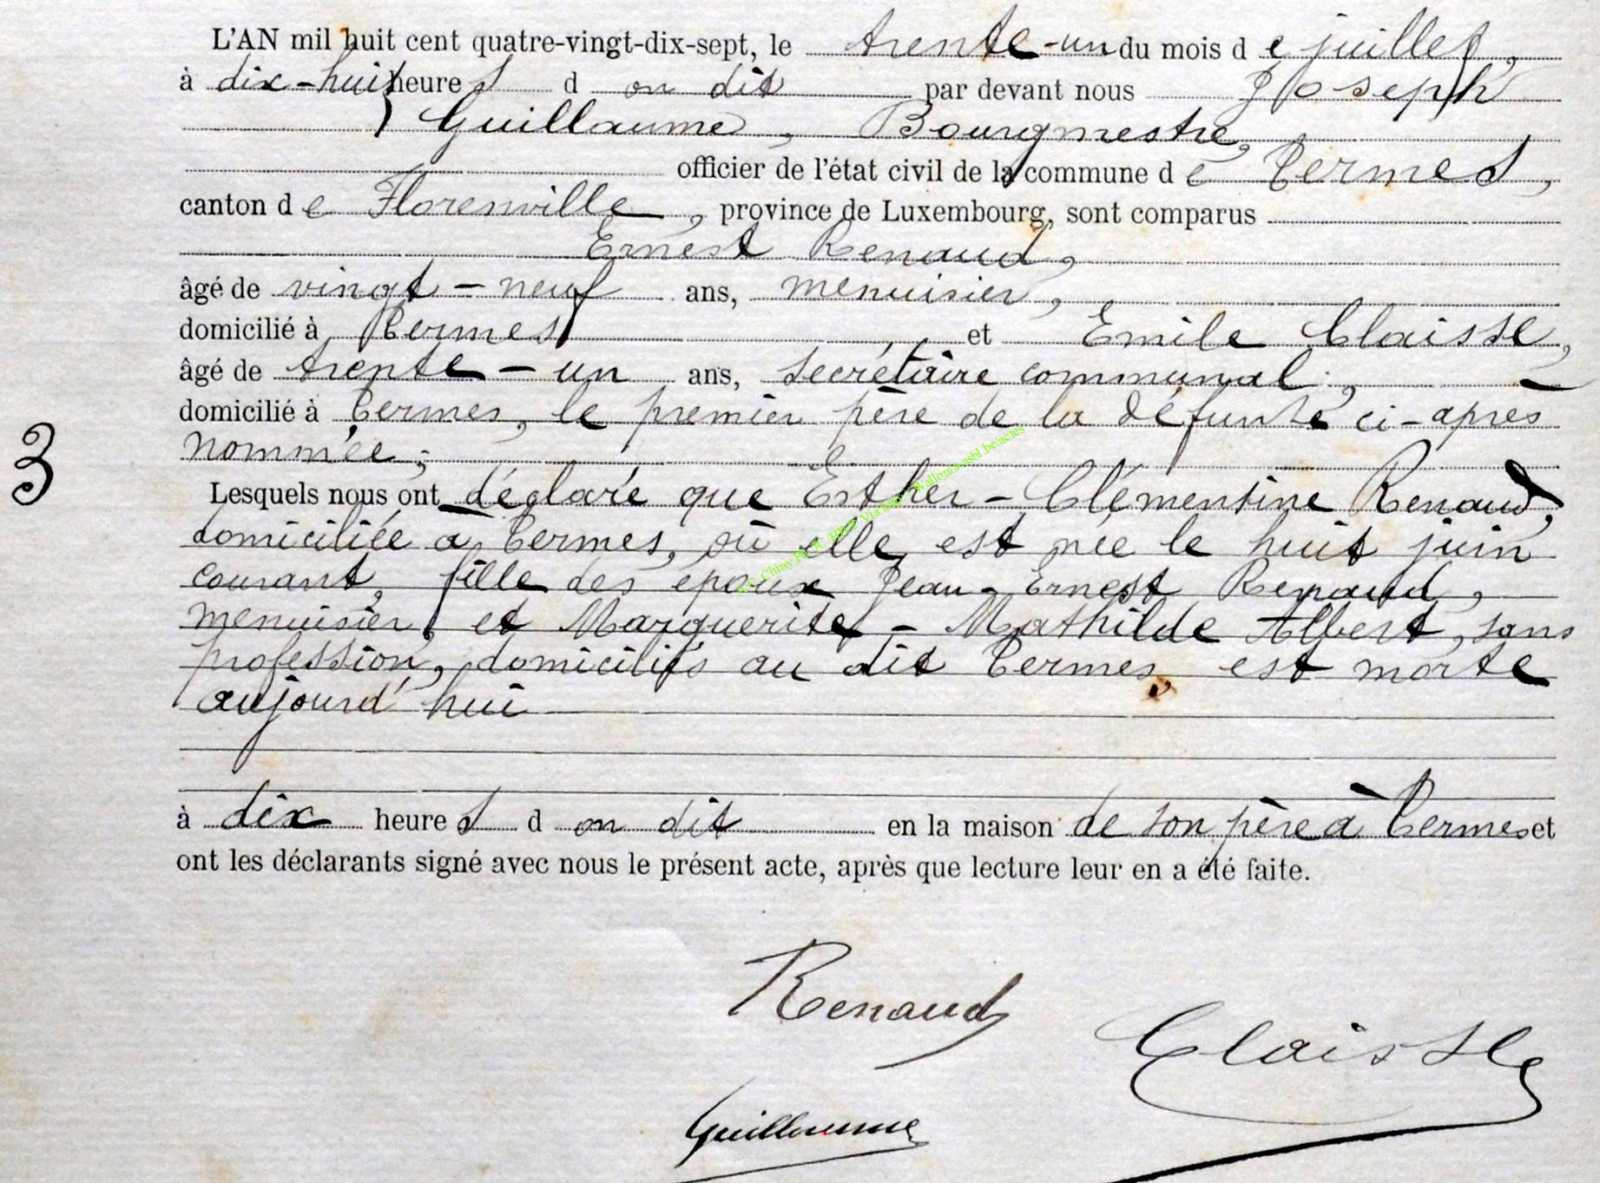 L'AN mil huit cent quatre-vingt-dix-sept, le trente-un du mois de juillet,
à dix-huit heures d on dit par devant nous Joseph
Guillaume, Bourgmestre,
officier de l'état civil de la commune de Termes,
canton de Florenville, province de Luxembourg, sont comparus
Ernest Renaud,
âgé de vingt-neuf ans, menuisier,
domicilié à Termes et Emile Claisse,
âgé de trente-un ans, secrétaire communal,
domicilié à Termes, le premier père de la défunte ci-après
nommée;
3
Lesquels nous ont déclaré que Esther-Clémentine Renaud,
domiciliée à Termes, où elle est née le huit juin
courant, fille des époux Jean-Ernest Renaud,
menuisier, et Marguerite-Mathilde Albert, sans
profession, domiciliés au dit Termes est morte
aujourd'hui
à dix heures d on dit en la maison de son père à Termes et
ont les déclarants signé avec nous le présent acte, après que lecture leur en a été faite.
Renaud
Claisse
Guillaume